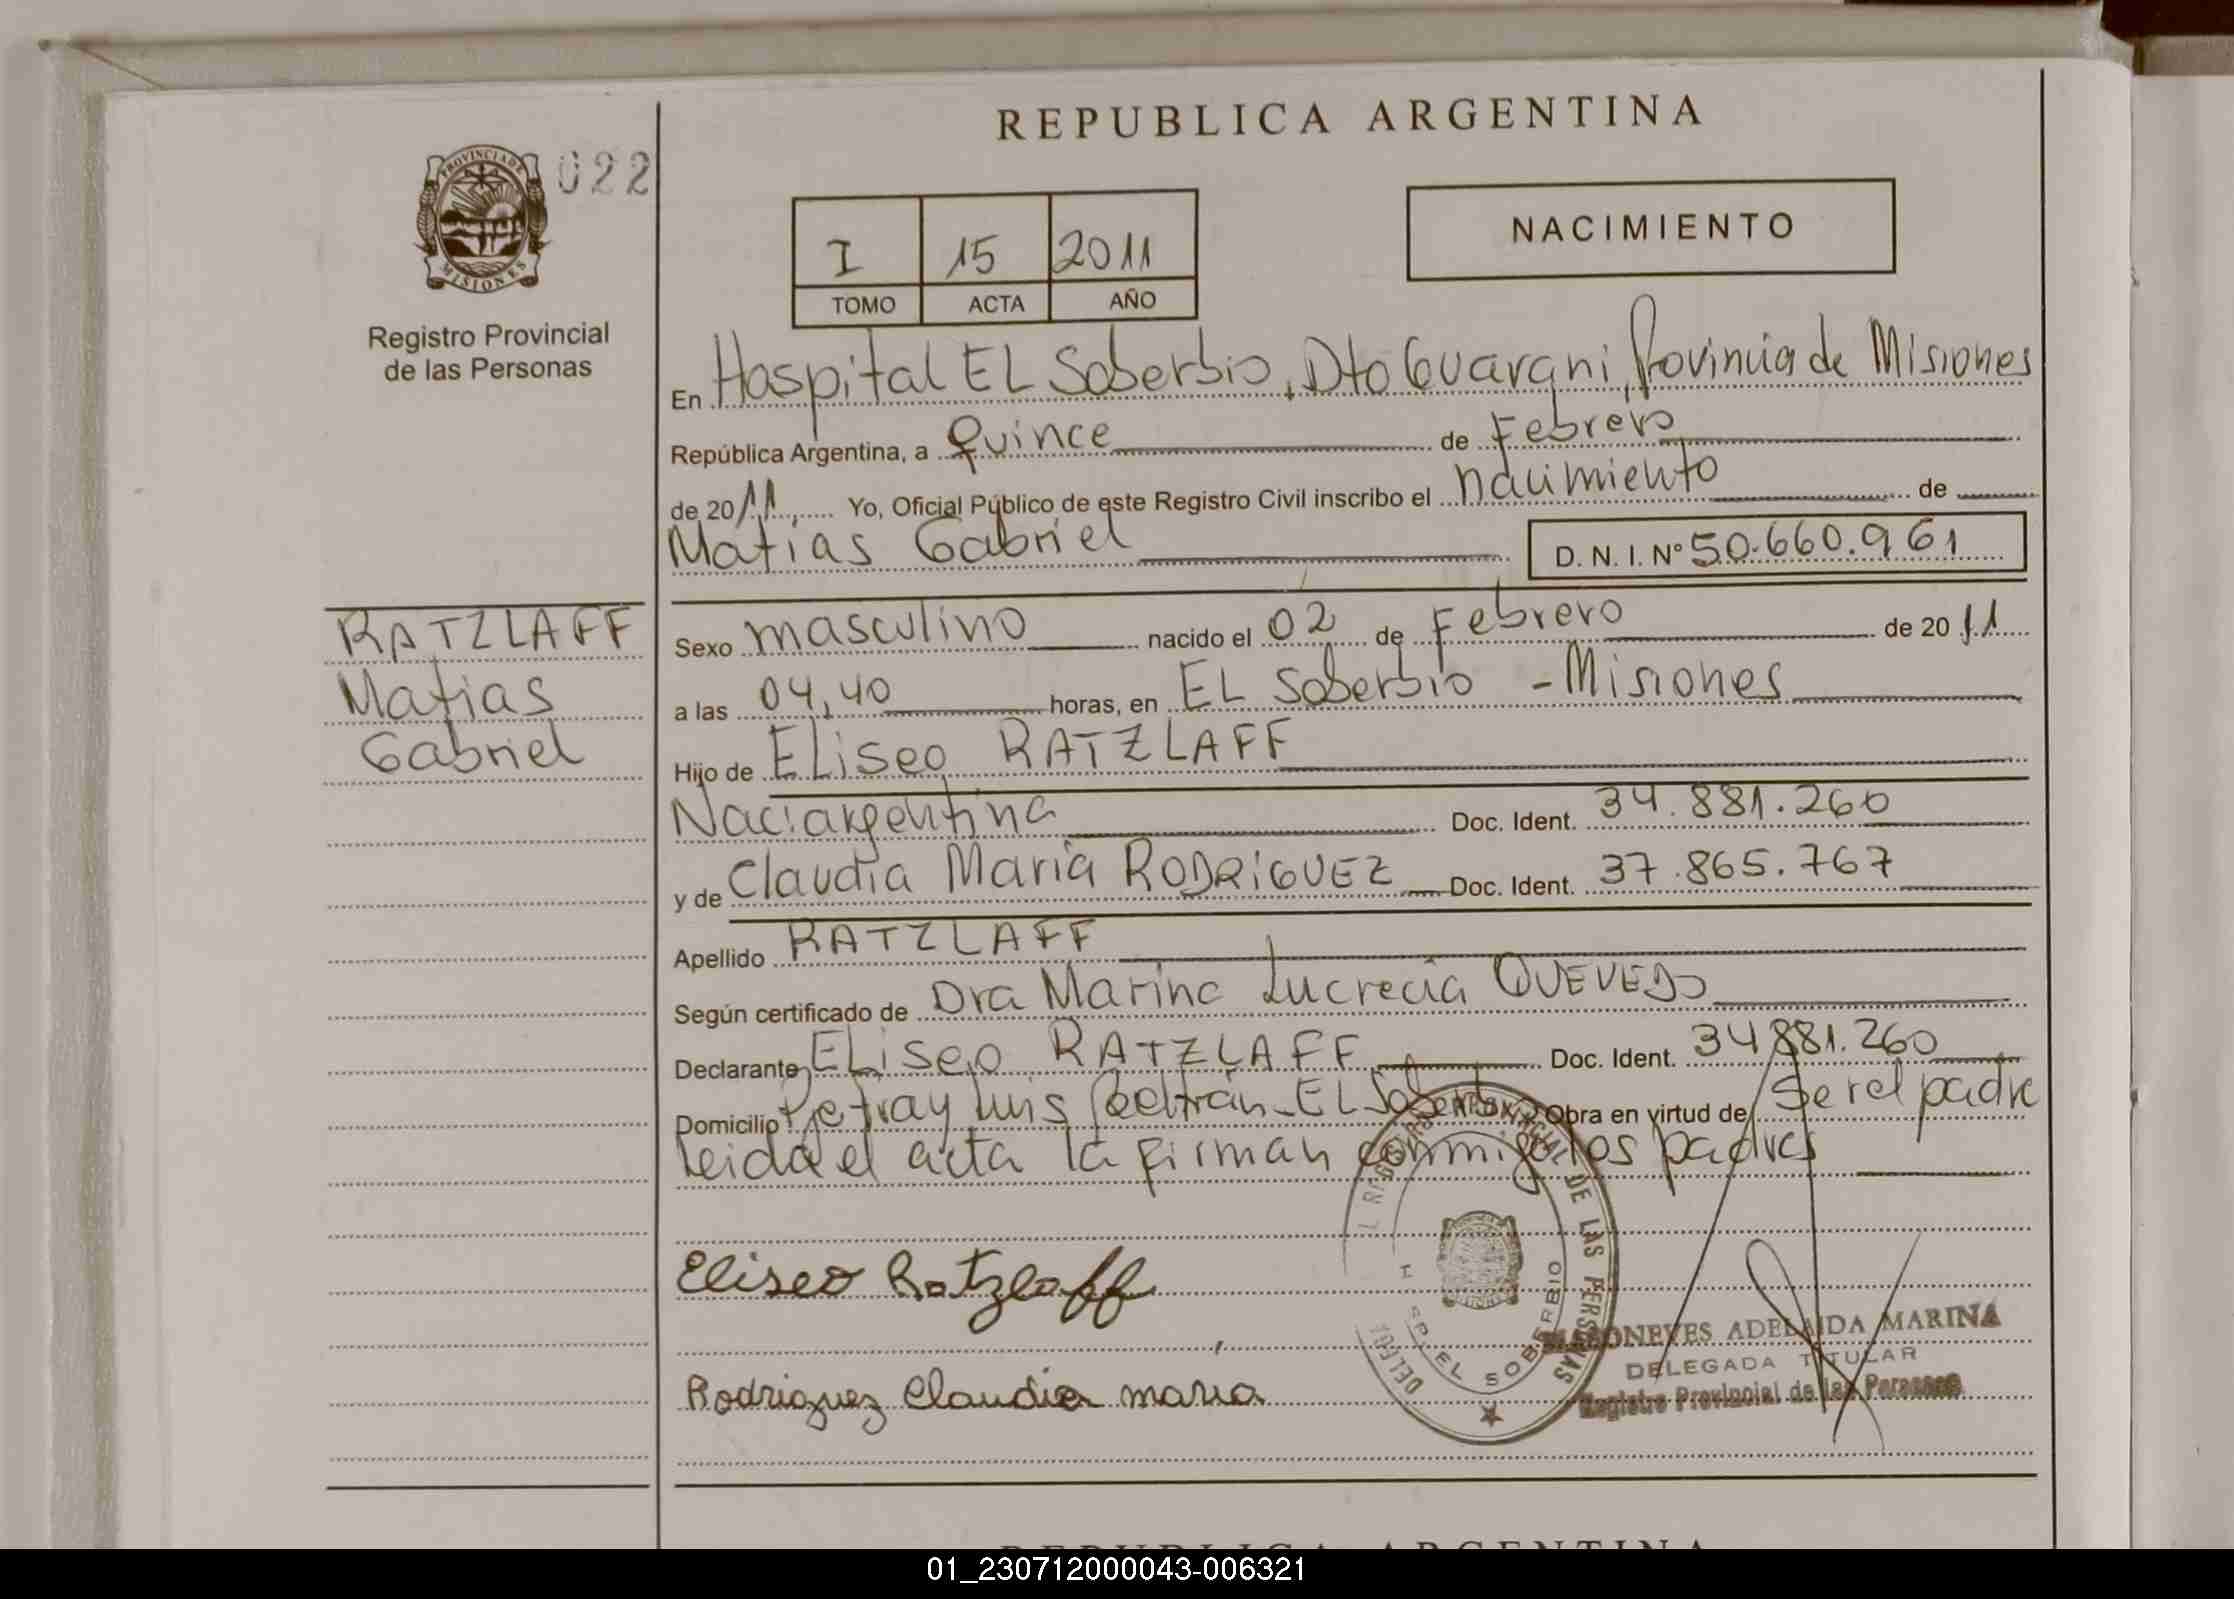 REPUBLICA ARGENTINA
PROVINCIA DE
MISIONES
022
Registro Provincial
de las Personas
I 15 2011
TOMO ACTA AÑO
NACIMIENTO
En Hospital EL Soberbio, Dto Guarani, Provincia de Misiones
República Argentina, a Quince de Febrero
de 2011, Yo, Oficial Público de este Registro Civil inscribo el nacimiento de
Matias Gabriel D. N. I. Nº 50.660.961
RATZLAFF
Matias
Gabriel
Sexo masculino nacido el 02 de Febrero de 2011
a las 04,40 horas, en EL Soberbio - Misiones
Hijo de ELiseo RATZLAFF
Naci: argentina Doc. Ident. 34.881.260
y de Claudia Maria RODRIGUEZ Doc. Ident. 37.865.767
Apellido RATZLAFF
Según certificado de Dra Marina Lucrecia QUEVEDO
Declarante ELiseo RATZLAFF Doc. Ident. 34881.260
Domicilio Luis Beltrán - EL Soberbio Obra en virtud de Ser el padre
Leida el acta la firman conmigo los padres
Eliseo Ratzlaff
Rodriguez Claudia maria
PROVINCIAL DE LAS PERSONAS
EL SOBERBIO
ADELAIDA MARINA
DELEGADA TITULAR
Registro Provincial de las Personas
REPUBLICA ARGENTINA
01_230712000043-006321